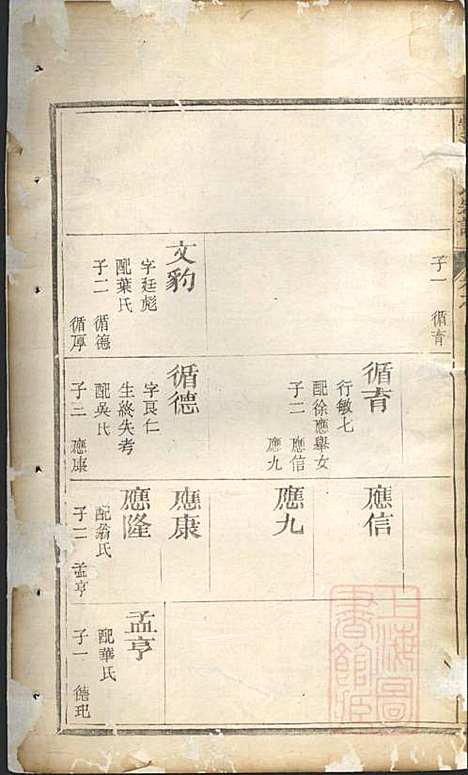 子一
循育
文豹
字廷彪
配葉氏
子二
循德
循厚
循育
行敏七
配徐應舉女
子二
應信
應九
循德
字良仁
生終失考
配吳氏
子二
應康
應信
應九
應康
應隆
配翁氏
子二
孟亨
孟亨
配華氏
子一
德玘
上海圖書館藏